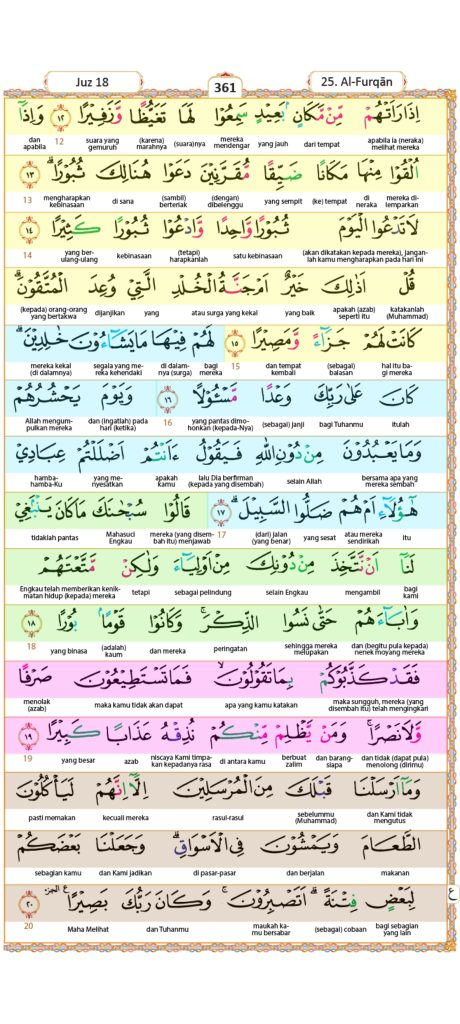 Juz 18
361
25. Al-Furqān
اِذَا رَاَتْهُمْ مِّنْ مَّكَانٍۢ بَعِيْدٍ سَمِعُوْا لَهَا تَغَيُّظًا وَّزَفِيْرًا ۝١٢ وَاِذَآ
apabila ia (neraka) melihat mereka dari tempat yang jauh mereka mendengar (suara)nya (karena) marahnya suara yang gemuruh 12 dan apabila
اُلْقُوْا مِنْهَا مَكَانًا ضَيِّقًا مُّقَرَّنِيْنَ دَعَوْا هُنَالِكَ ثُبُوْرًاۗ ۝١٣
mereka di-lemparkan di neraka (ke) tempat yang sempit (dengan) dibelenggu (sambil) berteriak di sana mengharapkan kebinasaan 13
لَا تَدْعُوا الْيَوْمَ ثُبُوْرًا وَّاحِدًا وَّادْعُوْا ثُبُوْرًا كَثِيْرًا ۝١٤
(akan dikatakan kepada mereka), jangan-lah kamu mengharapkan pada hari ini satu kebinasaan (tetapi) harapkanlah kebinasaan yang ber-ulang-ulang 14
قُلْ اَذٰلِكَ خَيْرٌ اَمْ جَنَّةُ الْخُلْدِ الَّتِيْ وُعِدَ الْمُتَّقُوْنَۗ
katakanlah (Muhammad) apakah (azab) seperti itu yang baik atau surga yang kekal yang dijanjikan (kepada) orang-orang yang bertakwa
كَانَتْ لَهُمْ جَزَاۤءً وَّمَصِيْرًا ۝١٥ لَهُمْ فِيْهَا مَا يَشَاۤءُوْنَ خٰلِدِيْنَۗ
hal itu ba-gi mereka (sebagai) balasan dan tempat kembali 15 bagi mereka di dalam-nya (surga) segala yang me-reka kehendaki mereka kekal (di dalamnya)
كَانَ عَلٰى رَبِّكَ وَعْدًا مَّسْـُٔوْلًا ۝١٦ وَيَوْمَ يَحْشُرُهُمْ
itulah bagi Tuhanmu (sebagai) janji yang pantas dimo-honkan (kepada-Nya) 16 dan (ingatlah) pada hari (ketika) Allah mengum-pulkan mereka
وَمَا يَعْبُدُوْنَ مِنْ دُوْنِ اللّٰهِ فَيَقُوْلُ ءَاَنْتُمْ اَضْلَلْتُمْ عِبَادِيْ
bersama apa yang mereka sembah selain Allah lalu Dia berfirman (kepada yang disembah) apakah kamu yang me-nyesatkan hamba-hamba-Ku
هٰٓؤُلَاۤءِ اَمْ هُمْ ضَلُّوا السَّبِيْلَۗ ۝١٧ قَالُوْا سُبْحٰنَكَ مَا كَانَ يَنْۢبَغِيْ
itu atau mereka sendirikah yang sesat (dari) jalan (yang benar) 17 mereka (yang disem-bah itu) menjawab Mahasuci Engkau tidaklah pantas
لَنَآ اَنْ نَّتَّخِذَ مِنْ دُوْنِكَ مِنْ اَوْلِيَاۤءَ وَلٰكِنْ مَّتَّعْتَهُمْ
bagi kami mengambil selain Engkau sebagai pelindung tetapi Engkau telah memberikan kenik-matan hidup (kepada) mereka
وَاٰبَاۤءَهُمْ حَتّٰى نَسُوا الذِّكْرَۚ وَكَانُوْا قَوْمًاۢ بُوْرًا ۝١٨
dan (begitu pula kepada) nenek moyang mereka sehingga mereka melupakan peringatan dan mereka (adalah) kaum yang binasa 18
فَقَدْ كَذَّبُوْكُمْ بِمَا تَقُوْلُوْنَۙ فَمَا تَسْتَطِيْعُوْنَ صَرْفًا
maka sungguh, mereka (yang disembah itu) telah mengingkari apa yang kamu katakan maka kamu tidak akan dapat menolak (azab)
وَّلَا نَصْرًاۚ وَمَنْ يَّظْلِمْ مِّنْكُمْ نُذِقْهُ عَذَابًا كَبِيْرًا ۝١٩
dan tidak (dapat pula) menolong (dirimu) dan barang-siapa berbuat zalim di antara kamu niscaya Kami timpa-kan kepadanya rasa azab yang besar 19
وَمَآ اَرْسَلْنَا قَبْلَكَ مِنَ الْمُرْسَلِيْنَ اِلَّآ اِنَّهُمْ لَيَأْكُلُوْنَ
dan Kami tidak mengutus sebelummu (Muhammad) rasul-rasul kecuali mereka pasti memakan
الطَّعَامَ وَيَمْشُوْنَ فِى الْاَسْوَاقِۗ وَجَعَلْنَا بَعْضَكُمْ
makanan dan berjalan di pasar-pasar dan Kami jadikan sebagian kamu
لِبَعْضٍ فِتْنَةًۗ اَتَصْبِرُوْنَۚ وَكَانَ رَبُّكَ بَصِيْرًا ۝٢٠ ࣖ الجزء
bagi sebagian yang lain (sebagai) cobaan maukah ka-mu bersabar dan Tuhanmu Maha Melihat 20
ع